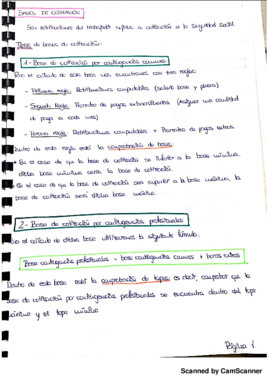 BASES DE COTIZACIÓN:
Son retribuciones del trabajador sujetas a cotización a la seguridad social
Tipos de bases de cotización:
1- Base de cotización por contingencias comunes
Para el cálculo de esta base nos encontramos con tres reglas:
- Primera regla: Retribuciones computables (salario base y pluses)
- Segunda Regla: Prorrateo de pagas extraordinarias (Asignar una cantidad
de paga a cada mes)
- Tercera regla: Retribuciones computables + Prorrateo de pagas extras.
Dentro de esta regla está la comprobación de bases:
• En el caso de que la base de cotización sea inferior a la base mínima,
dicha base mínima será la base de cotización.
• En el caso de que la base de cotización sea superior a la base máxima, la
base de cotización será dicha base máxima.
2- Base de cotización por contingencias profesionales
Para el cálculo de dicha base utilizaremos la siguiente fórmula:
Base contingencias profesionales = base contingencias comunes + horas extras
Dentro de esta base está la comprobación de topes, es decir, comprobar que la
base de cotización por contingencias profesionales se encuentra dentro del tope
máximo y el tope mínimo
Página 1
Scanned by CamScanner